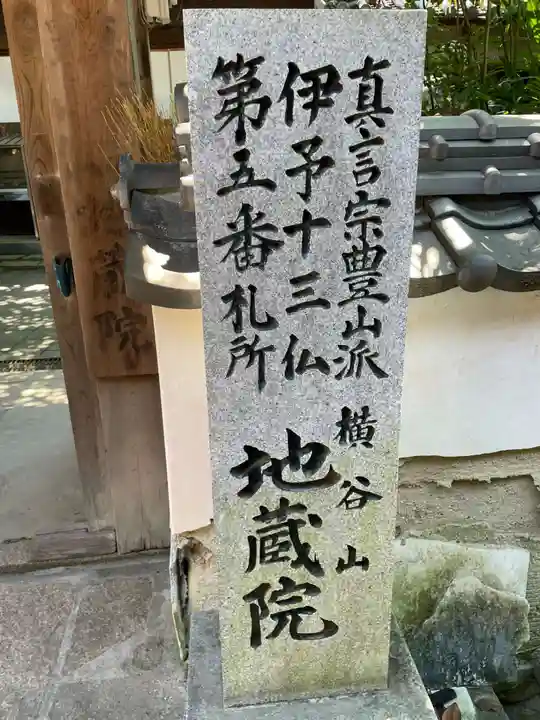 真言宗豊山派
伊予十三仏
第五番札所
横谷山
地蔵院
院